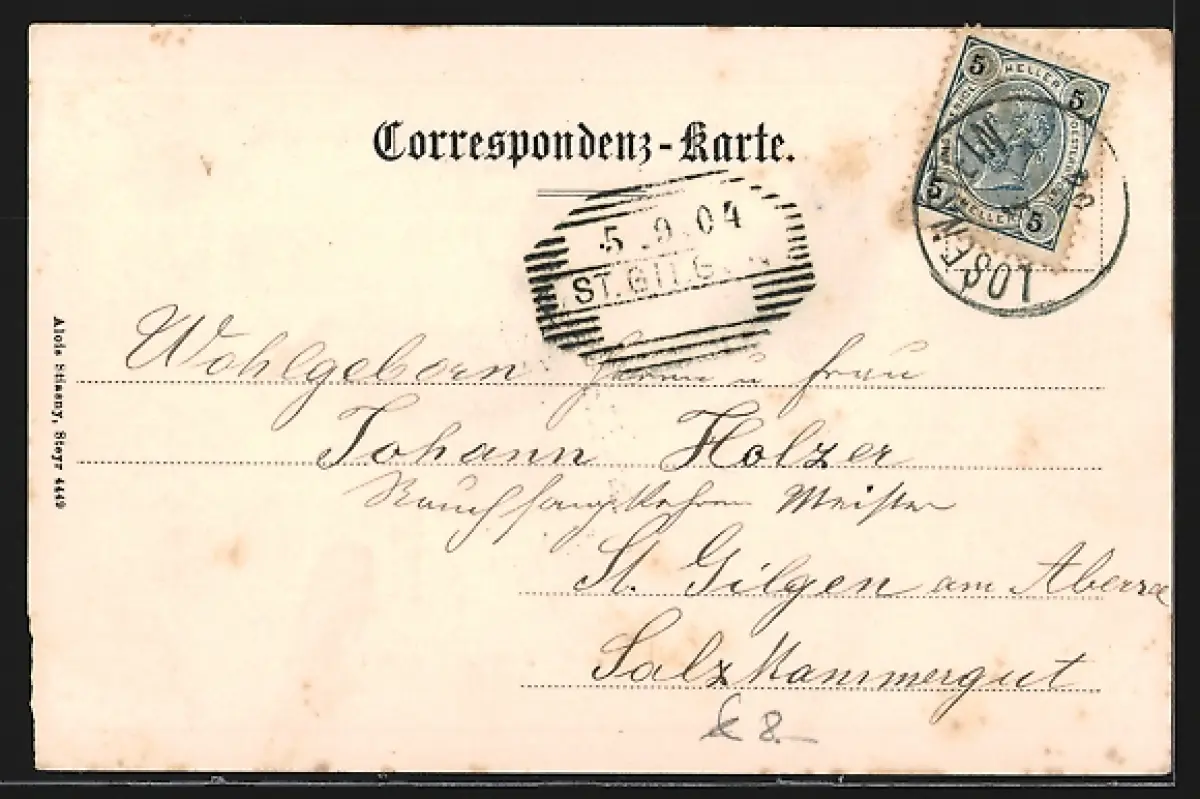 Correspondenz-Karte.
5 HELLER 5
5 HELLER 5
LOSENSTEIN
5.9.04
ST. GILGEN
Wohlgeborn Herrn u frau
Johann Holzer
Rauchfangkehrer Meister
St. Gilgen am Abersee
Salzkammergut
8.-
Alois Stissny, Steyr 4449